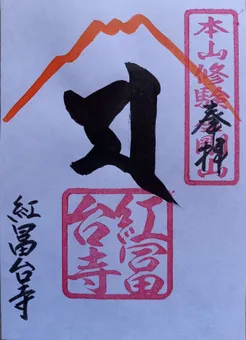 本山修験
奉拝
紅冨
台寺
紅冨台寺